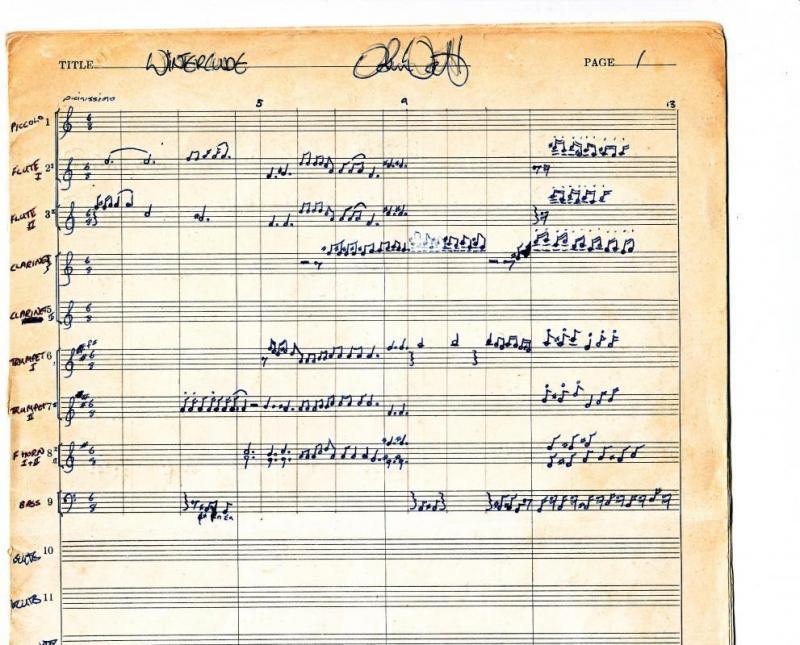 TITLE WINTERLUDE PAGE 1
pianissimo
5 9 13
PICCOLO 1
FLUTE I 2
FLUTE II 3
CLARINET
CLARINET 5
TRUMPET I 6
TRUMPET II 7
F HORN I+II 8
BASS 9
10
11